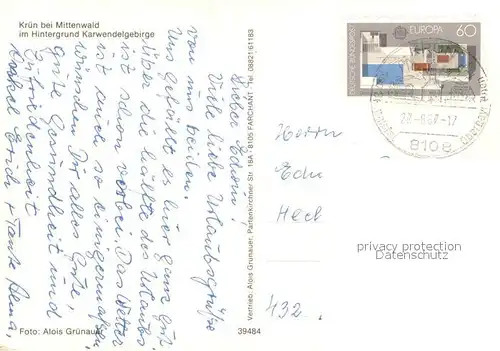 Krün bei Mittenwald
im Hintergrund Karwendelgebirge
Lieber Edwin!
Viele liebe Urlaubsgrüße
von uns beiden.
Uns gefällt es hier ganz gut
über die Hälfte des Urlaubs
ist schon vorbei. Das Wetter
ist auch so einigermaßen
wünschen Dir alles Gute,
gute Gesundheit und
Zufriedenheit
Onkel Erich + Tante Alma,
Foto: Alois Grünauer
39484
Vertrieb: Alois Grünauer, Partenkirchner-Str. 18A · 8105 FARCHANT · Tel. 08821/61183
EUROPA 60
DEUTSCHE BUNDESPOST
8108
Herrn
Edw
Heck
432
privacy protection
watermark